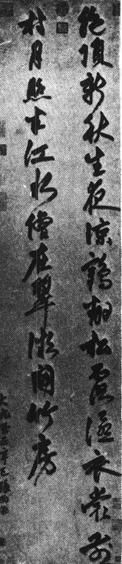 絕頂新秋生夜涼鶴翻松露滴衣裳前
村月照半江水僧在翠微開竹房